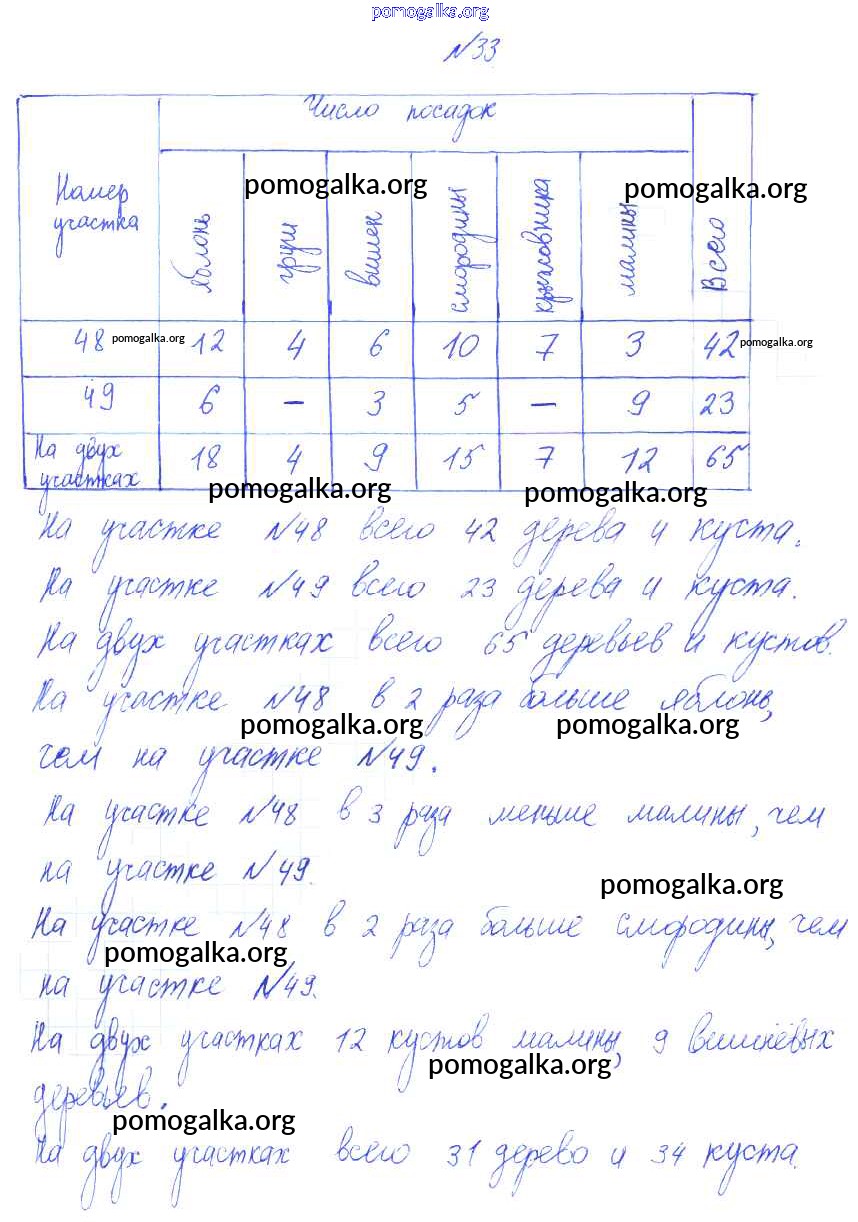 pomogalka.org
№33
Число посадок
Номер участка
яблонь
груш
вишен
смородины
крыжовника
малины
Всего
pomogalka.org
pomogalka.org
48 pomogalka.org 12 4 6 10 7 3 42 pomogalka.org
49 6 – 3 5 – 9 23
На двух участках 18 4 9 15 7 12 65
pomogalka.org pomogalka.org
На участке №48 всего 42 дерева и куста.
На участке №49 всего 23 дерева и куста.
На двух участках всего 65 деревьев и кустов.
На участке №48 в 2 раза больше яблонь,
pomogalka.org pomogalka.org
чем на участке №49.
На участке №48 в 3 раза меньше малины, чем
на участке №49.
pomogalka.org
На участке №48 в 2 раза больше смородины, чем
pomogalka.org
на участке №49.
На двух участках 12 кустов малины, 9 вишнёвых
pomogalka.org
деревьев.
pomogalka.org
На двух участках всего 31 дерево и 34 куста.